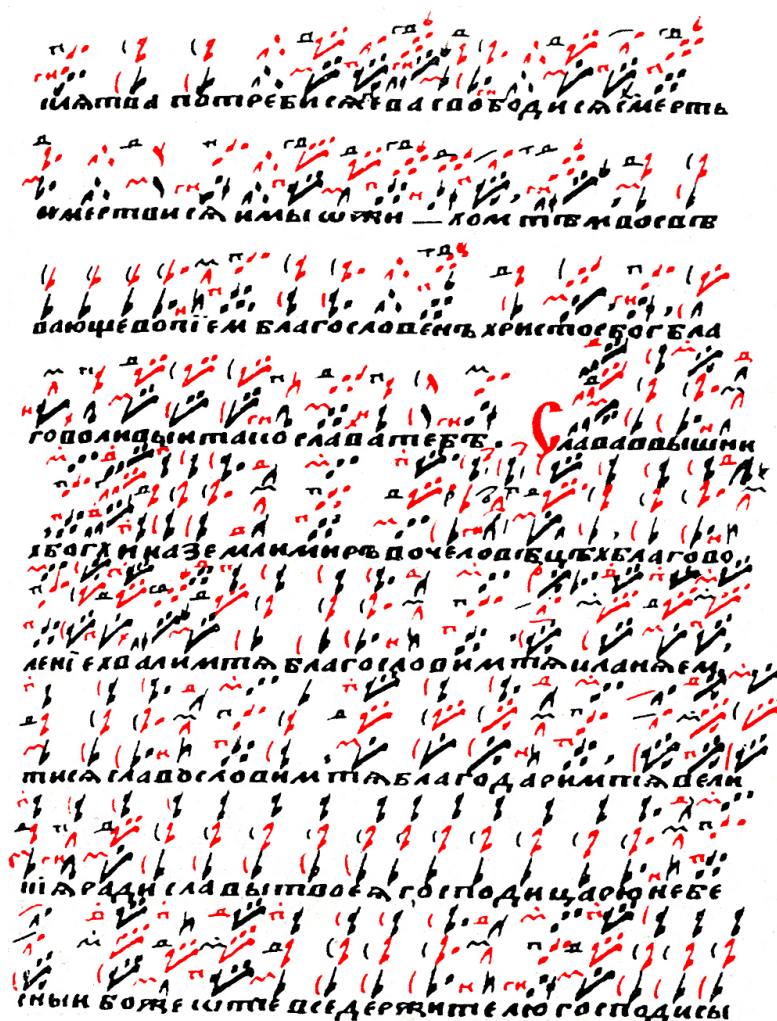 клѧтва потребисѧ ева свободисѧ смерть
ѹмертвисѧ и мы ѡжи — хом тѣм воспѣ
вающе вопїем благословенъ христос бог бла
говоливыи тако слава тебѣ. Слава ввышни
х богꙋ и на земли миръ во человѣцѣх благово
ленїе хвалим тѧ благословим тѧ кланѧем
тисѧ славословим тѧ благодарим тѧ вели
кїѧ ради славы твоеѧ господи царю небе
сныи боже ѡтче вседержителю господи сы